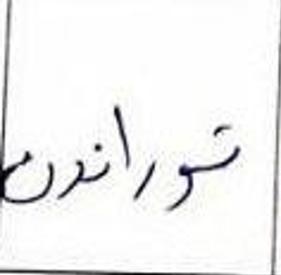 شوراندن